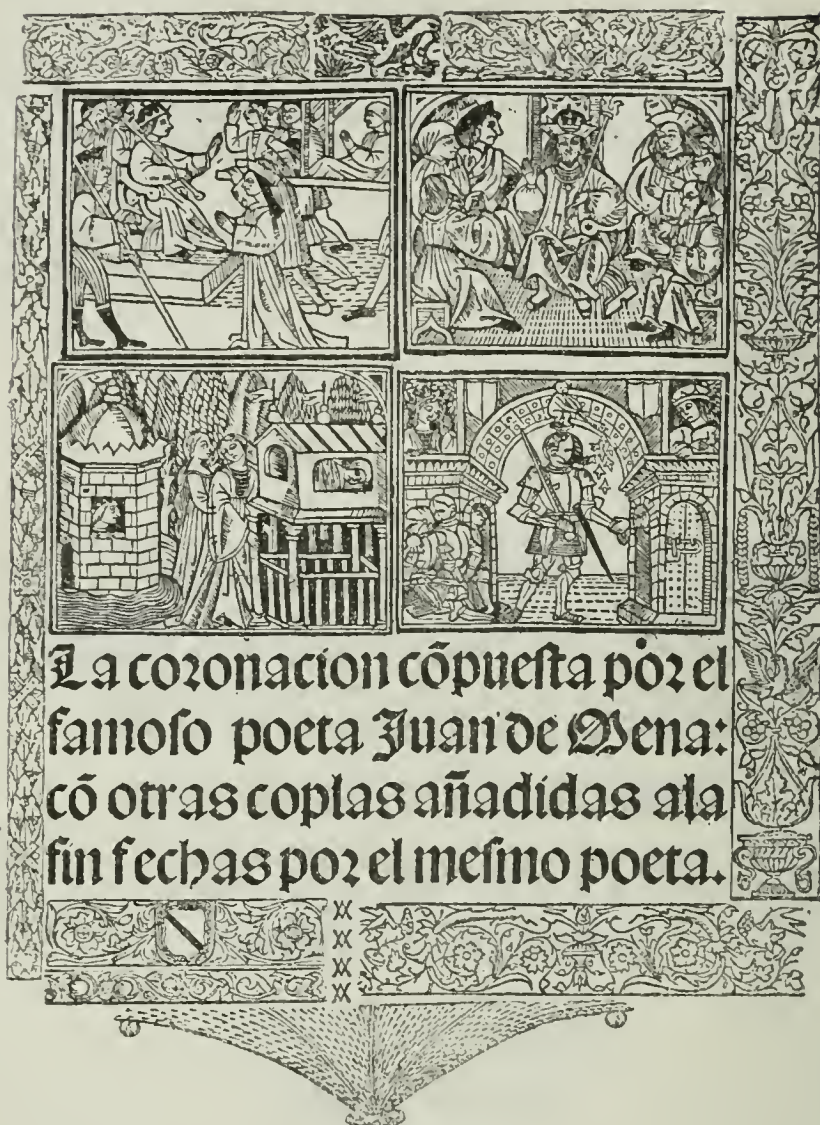 La coronacion cõpueſta por el
famoſo poeta Juan de Mena:
cõ otras coplas añadidas ala
fin fechas por el meſmo poeta.